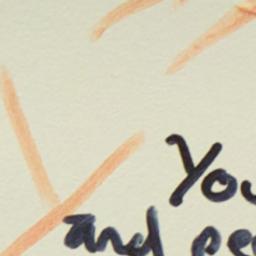 You
and pe